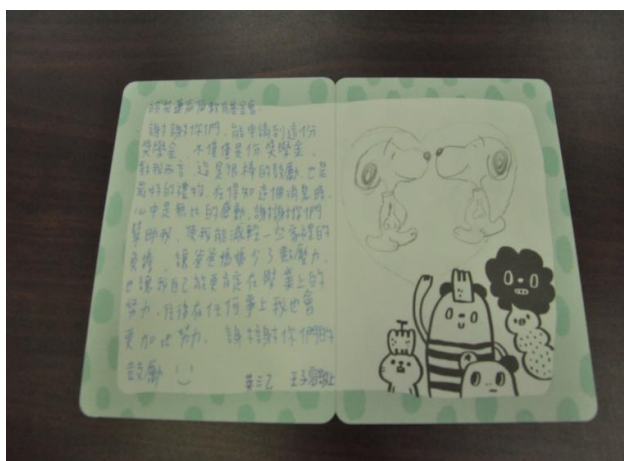 謝謝你們,能申請到這份
獎學金,不僅僅是份獎學金,
對我而言,這是很棒的鼓勵,也是
最好的禮物,在得知這個消息時,
心中是無比的感動,謝謝你們
幫助我,使我能減輕一些家裡的
負擔,讓爸爸媽媽少了點壓力,
也讓我自己能更肯定在學業上的
努力,往後在任何事上我也會
更加比努力,謝謝你們的
鼓勵
英三乙 王子